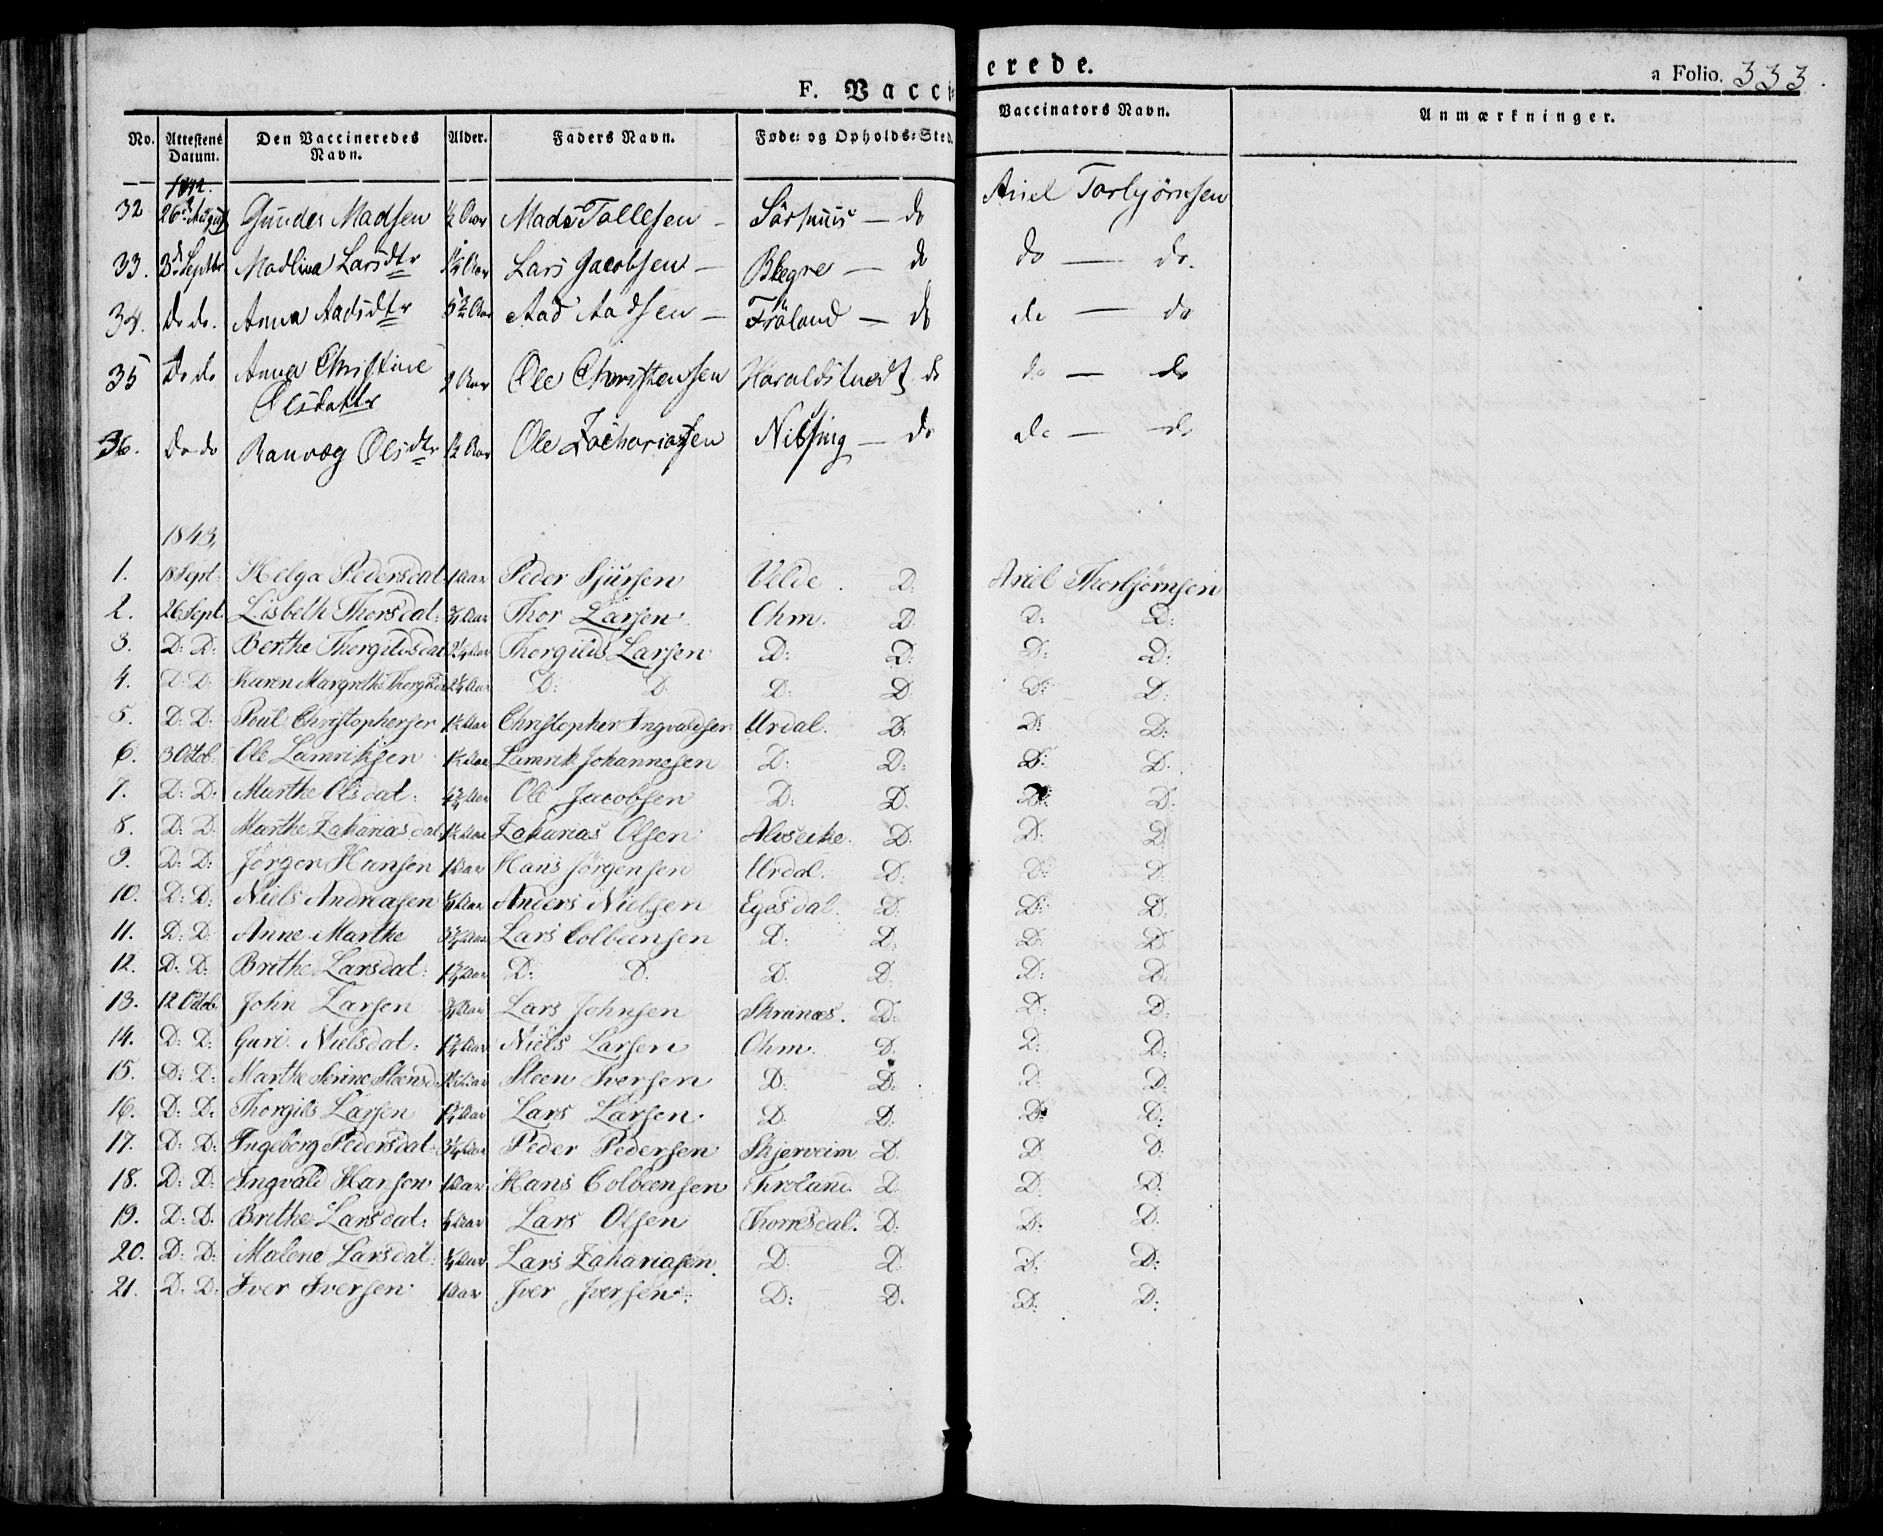 F. Vaccinerede.
a Folio. 333.
No. Attestens Datum. Den Vaccineredes Navn. Alder. Faders Navn. Føde- og Opholds-Sted. Vaccinators Navn. Anmærkninger.
1842.
32 26 August Gunder Madsen ½ Aar Mads Tollesen - — do Ariel Torbjørnsen
33. 3d Septbr Madlina Larsdtr Aar Lars Jacobsen - Blegre — do do — do.
34. do do. Anna Aadsdtr Aar Aad Aadsen - Fröland — do do — do
35 do do Anna Christine Olsdattr Aar Ole Christensen Haraldstvedt do do — do
36. do do Ranvæg Olsdtr ½ Aar Ole Zachariassen — do do — do
1843,
1. 18 Sept: Helga Pedersdat. 1 Aar Peder Sjursen Velde. D: Ariel Thorbjørnsen
2. 26 Sept. Lisbeth Thorsdat: Aar Thor Larsen Ohm. D. D: D:
3. D: D: Berthe Thorgildsdat Aar Thorgilds Larsen D: D: D: D:
4. D: D: Karen Margrethe Aar D: D. D: D. D: D:
5. D: D: Poul Christophersen Aar Christopher Ingvaldsen Urdal. D. D: D:
6. 3 Octob. Ole Lamriksen Aar Lamrik Johannesen D: D: D: D.
7. D: D: Marthe Olsdat: Aar Ole Jacobsen D: D. D: D.
8. D: D. Marthe Zakariasdat Aar Zakarias Olsen Alvseike. D. D: D.
9. D: D: Jørgen Hansen 1 Aar Hans Jörgensen Urdal. D: D: D.
10. D: D: Niels Andreasen Aar Anders Nielsen Egesdal. D: D: D.
11. D: D. Anne Marthe Aar Lars Colbeensen D. D. D. D.
12. D: D: Brithe Larsdat: Aar D: D. D. D. D: D:
13. 12 Octob. John Larsen Aar Lars Johnsen D. D: D:
14. D: D: Guri Nielsdat: Aar Niels Larsen Ohm. D. D: D:
15. D: D. Marthe Serine Steensd. Aar Steen Iversen D. D: D D:
16. D: D. Thorgils Larsen Aar Lars Larsen. D. D. D: D:
17. D: D: Ingeborg Pedersdat: Aar Peder Pedersen Skjerveim D. D. D.
18. D: D: Ingvald Hansen 1 Aar Hans Colbeensen Froland. D D. D.
19. D: D. Brithe Larsdat: Aar Lars Olsen Thorresdal. D: D: D.
20. D: D: Malene Larsdat: Aar Lars Zakariasen. D. D. D: D:
21. D. D: Iver Iversen 1 Aar Iver Iversen. D: D. D: D: